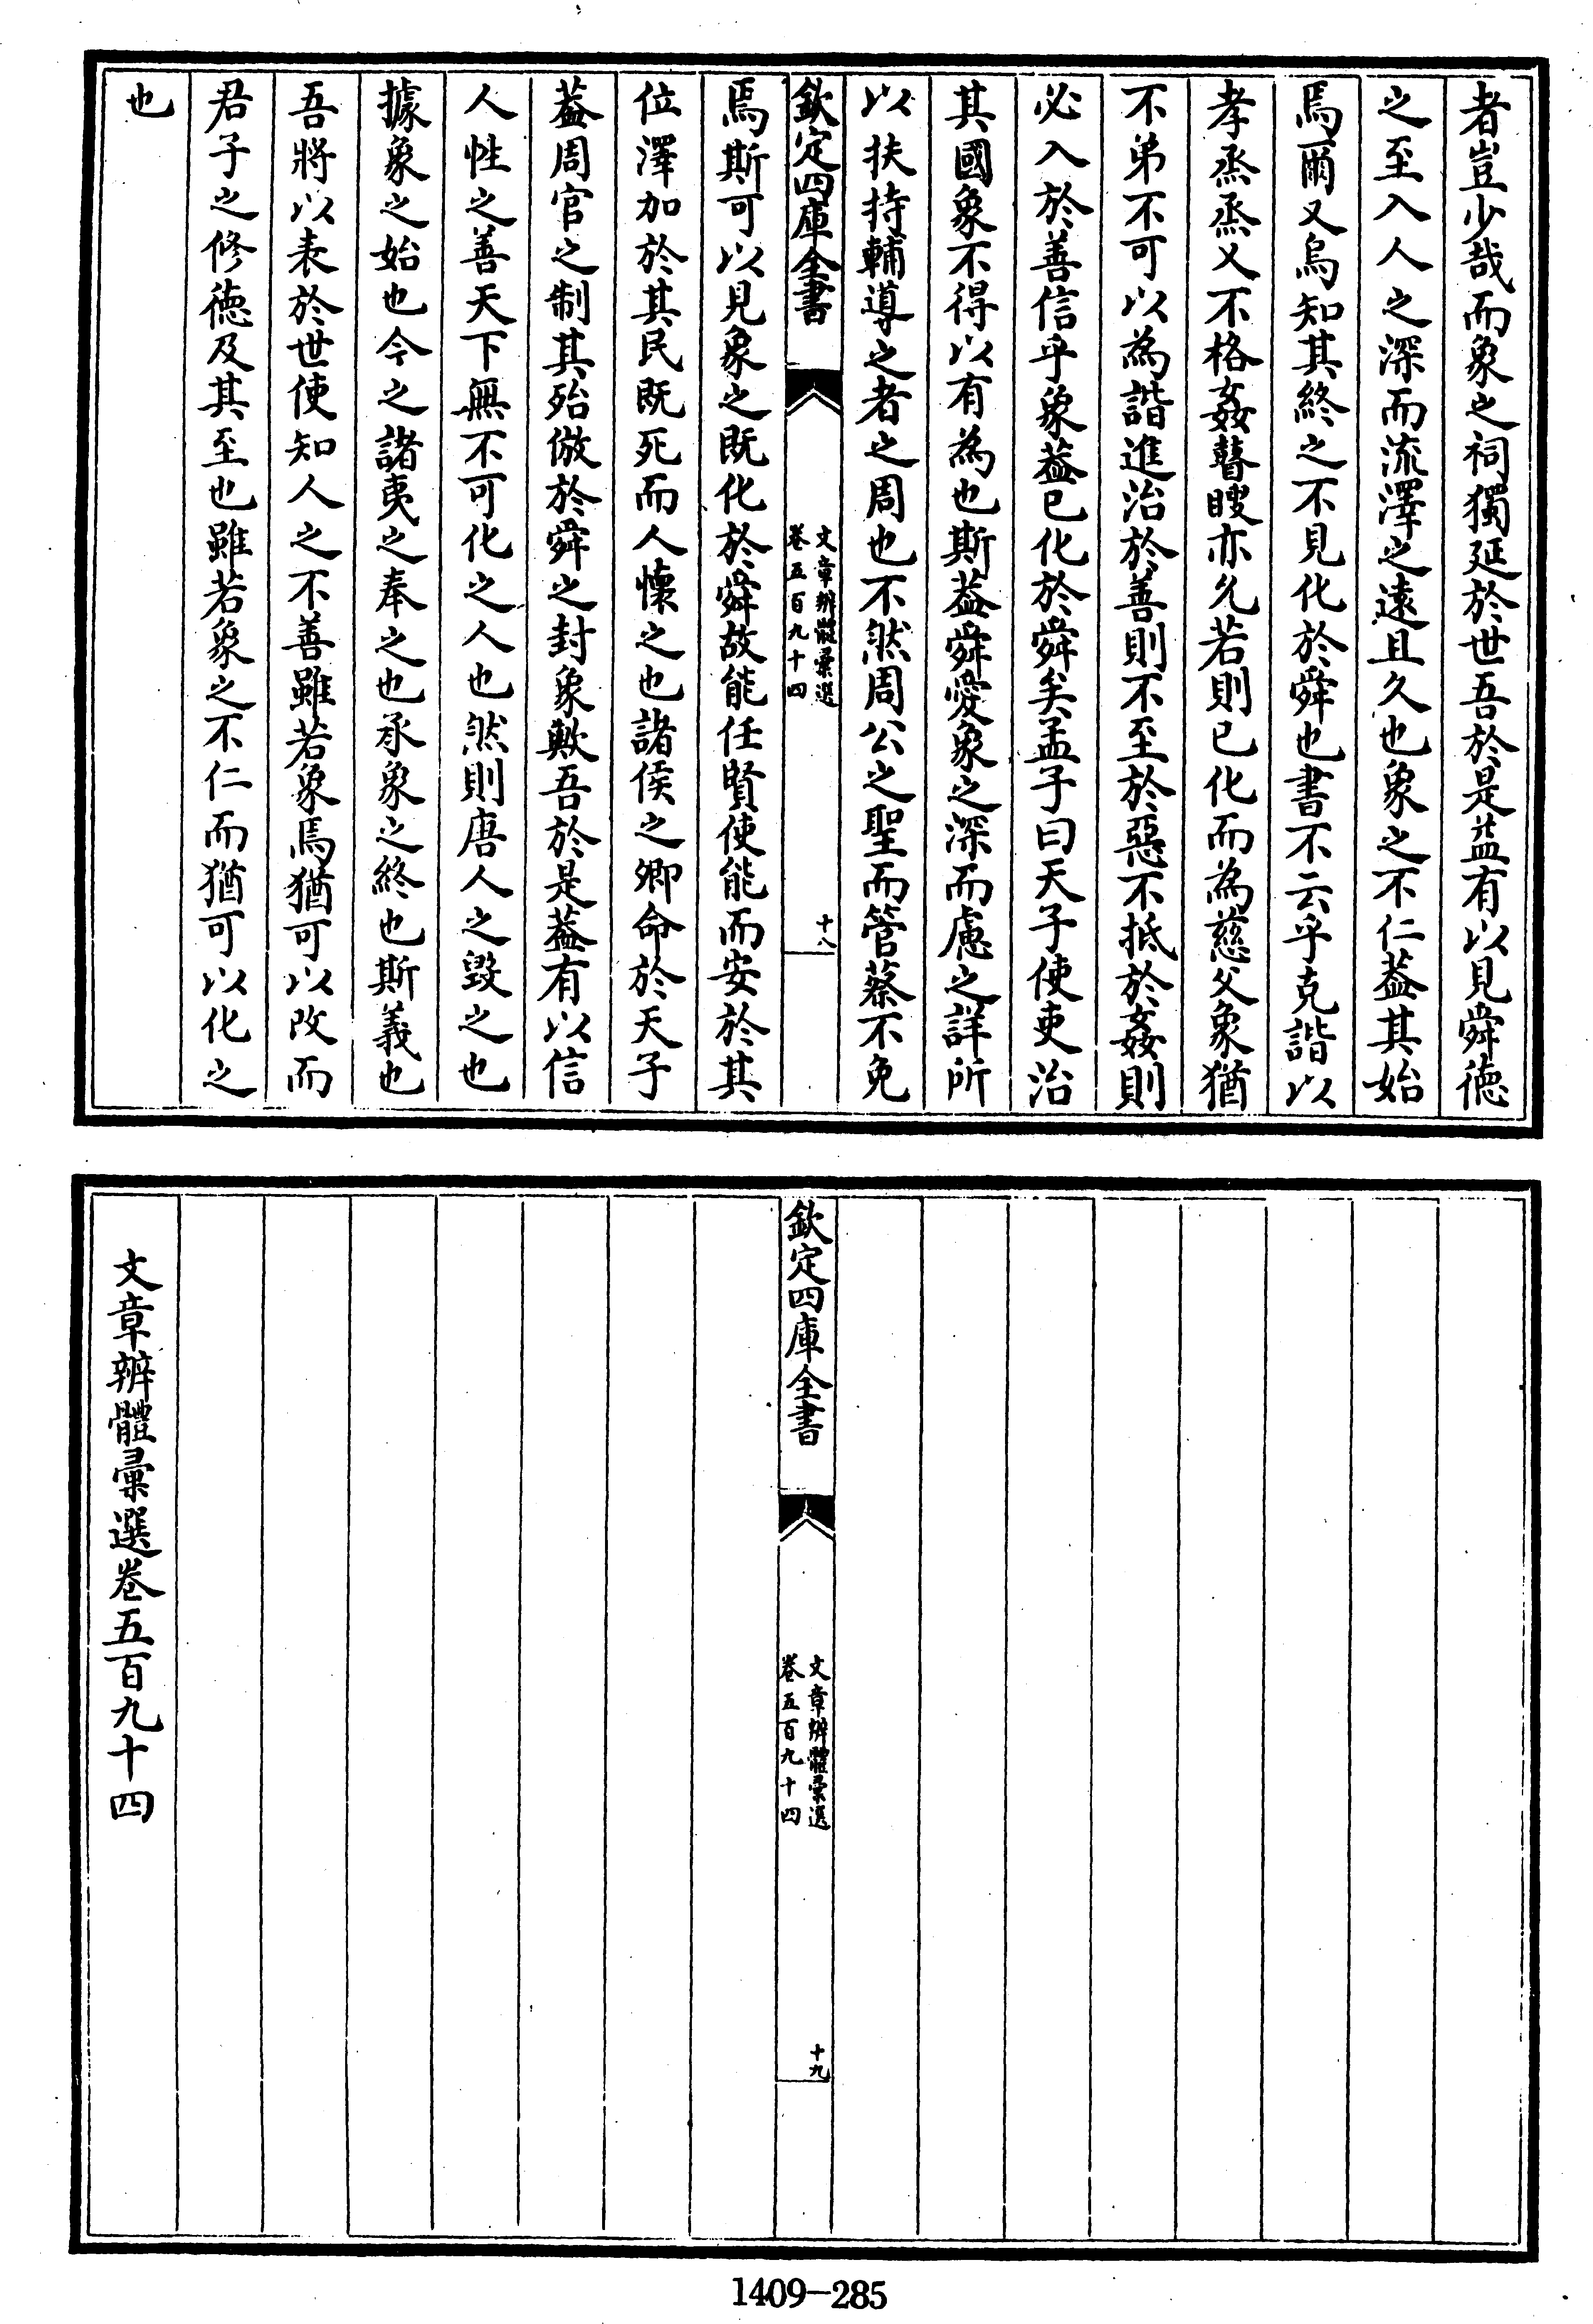 者豈少哉而象之祠獨延於世吾於是葢有以見舜徳
之至入人之深而流澤之遠且久也象之不仁葢其始
焉爾又烏知其終之不見化於舜也書不云乎克諧以
孝烝烝乂不格姦瞽瞍亦允若則已化而為慈父象猶
不弟不可以為諧進治於善則不至於惡不抵於姦則
必入於善信乎象葢已化於舜矣孟子曰天子使吏治
其國象不得以有為也斯葢舜愛象之深而慮之詳所
以扶持輔導之者之周也不然周公之聖而管蔡不免
欽定四庫全書
文章辨體彙選
卷五百九十四
十八
焉斯可以見象之既化於舜故能任賢使能而安於其
位澤加於其民既死而人懐之也諸侯之卿命於天子
葢周官之制其殆倣於舜之封象歟吾於是葢有以信
人性之善天下無不可化之人也然則唐人之毁之也
據象之始也今之諸夷之奉之也承象之終也斯義也
吾將以表於世使知人之不善雖若象焉猶可以改而
君子之修徳及其至也雖若象之不仁而猶可以化之
也
欽定四庫全書
文章辨體彙選
卷五百九十四
十九
文章辨體彙選卷五百九十四
1409-285